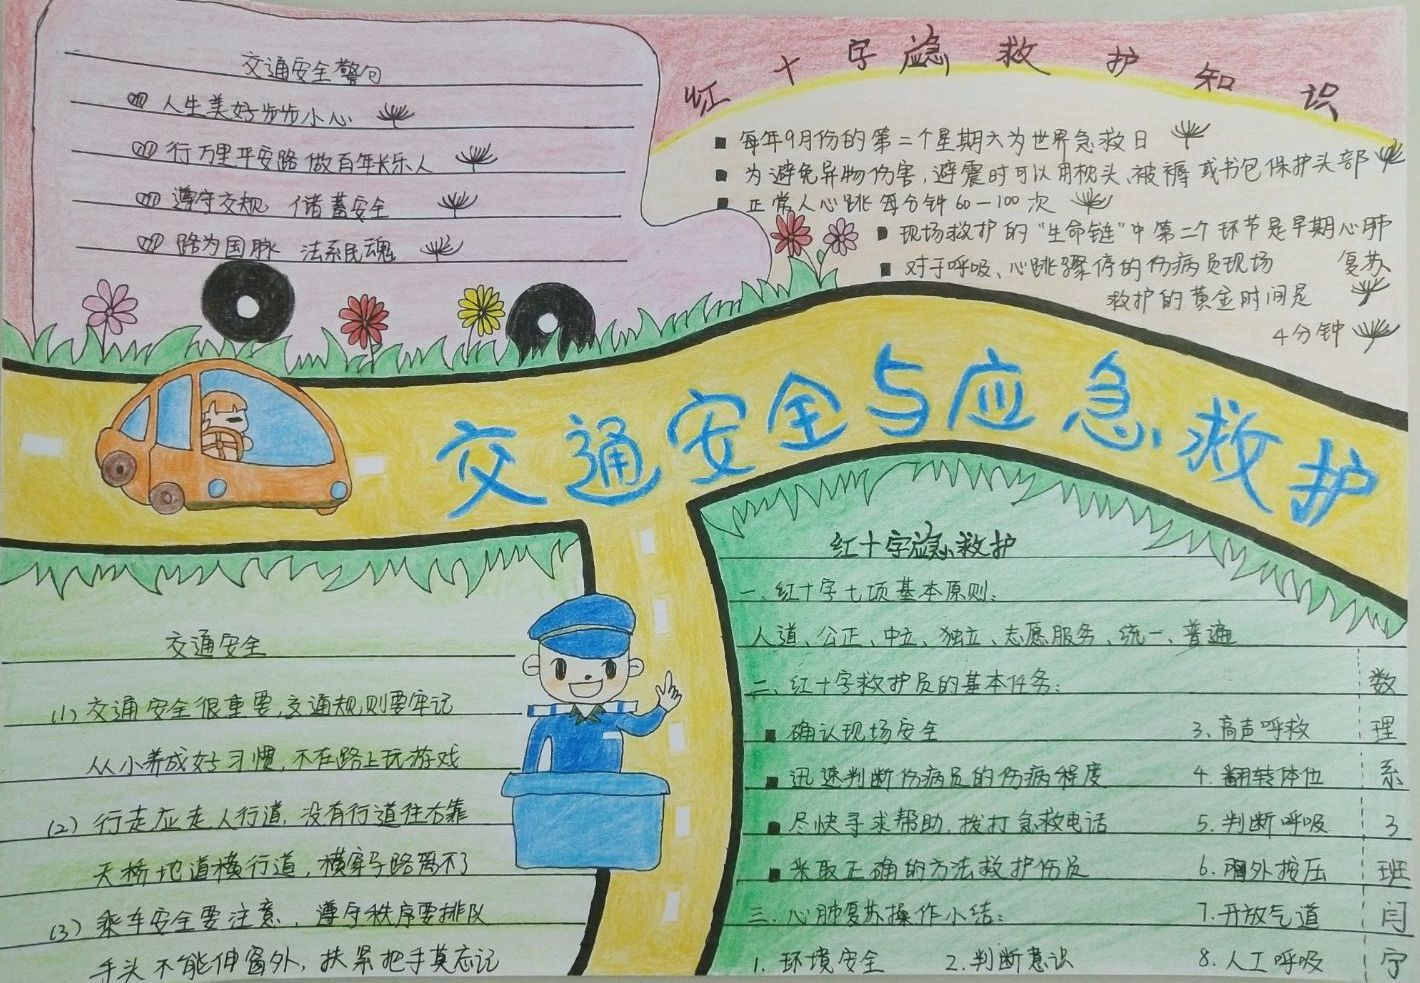 交通安全警句
(1) 人生美好步步小心
(2) 行万里平安路 做百年长乐人
(3) 遵守交规 储蓄安全
(4) 路为国脉 法系民魂
红十字应急救护知识
■ 每年9月份的第二个星期六为世界急救日
■ 为避免异物伤害,避震时可以用枕头、被褥或书包保护头部
■ 正常人心跳每分钟60—100次
■ 现场救护的"生命链"中第二个环节是早期心肺
复苏
■ 对于呼吸、心跳骤停的伤病员现场
救护的黄金时间是
4分钟
交通安全与应急救护
交通安全
(1) 交通安全很重要,交通规则要牢记
从小养成好习惯,不在路上玩游戏
(2) 行走应走人行道,没有行道往右靠
天桥地道横行道,横穿马路离不了
(3) 乘车安全要注意,遵守秩序要排队
手头不能伸窗外,扶紧把手莫忘记
红十字应急救护
一、红十字七项基本原则:
人道、公正、中立、独立、志愿服务、统一、普遍
二、红十字救护员的基本任务:
■ 确认现场安全
■ 迅速判断伤病员的伤病程度
■ 尽快寻求帮助,拨打急救电话
■ 采取正确的方法救护伤员
三、心肺复苏操作小结:
1. 环境安全
2. 判断意识
3. 高声呼救
4. 翻转体位
5. 判断呼吸
6. 胸外按压
7. 开放气道
8. 人工呼吸
数理系3班闫宁